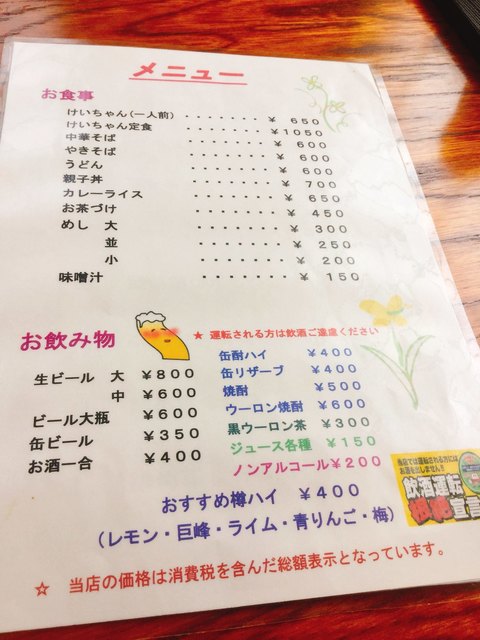 メニュー
お食事
けいちゃん(一人前) ・・・・・・・ ¥ 650
けいちゃん定食 ・・・・・・・ ¥1050
中華そば ・・・・・・・ ¥ 600
やきそば ・・・・・・・ ¥ 600
うどん ・・・・・・・ ¥ 600
親子丼 ・・・・・・・ ¥ 700
カレーライス ・・・・・・・ ¥ 650
お茶づけ ・・・・・・・ ¥ 450
めし 大 ・・・・・・・ ¥ 300
並 ・・・・・・・ ¥ 250
小 ・・・・・・・ ¥ 200
味噌汁 ・・・・・・・ ¥ 150
お飲み物
★ 運転される方は飲酒ご遠慮ください
生ビール 大 ¥800
中 ¥600
ビール大瓶 ¥600
缶ビール ¥350
お酒一合 ¥400
缶酎ハイ ¥400
缶リザーブ ¥400
焼酎 ¥500
ウーロン焼酎 ¥600
黒ウーロン茶 ¥300
ジュース各種 ¥150
ノンアルコール¥200
おすすめ樽ハイ ¥400
(レモン・巨峰・ライム・青りんご・梅)
当店では運転される方には
お酒を出しません!!
飲酒運転
根絶宣言
☆ 当店の価格は消費税を含んだ総額表示となっています。